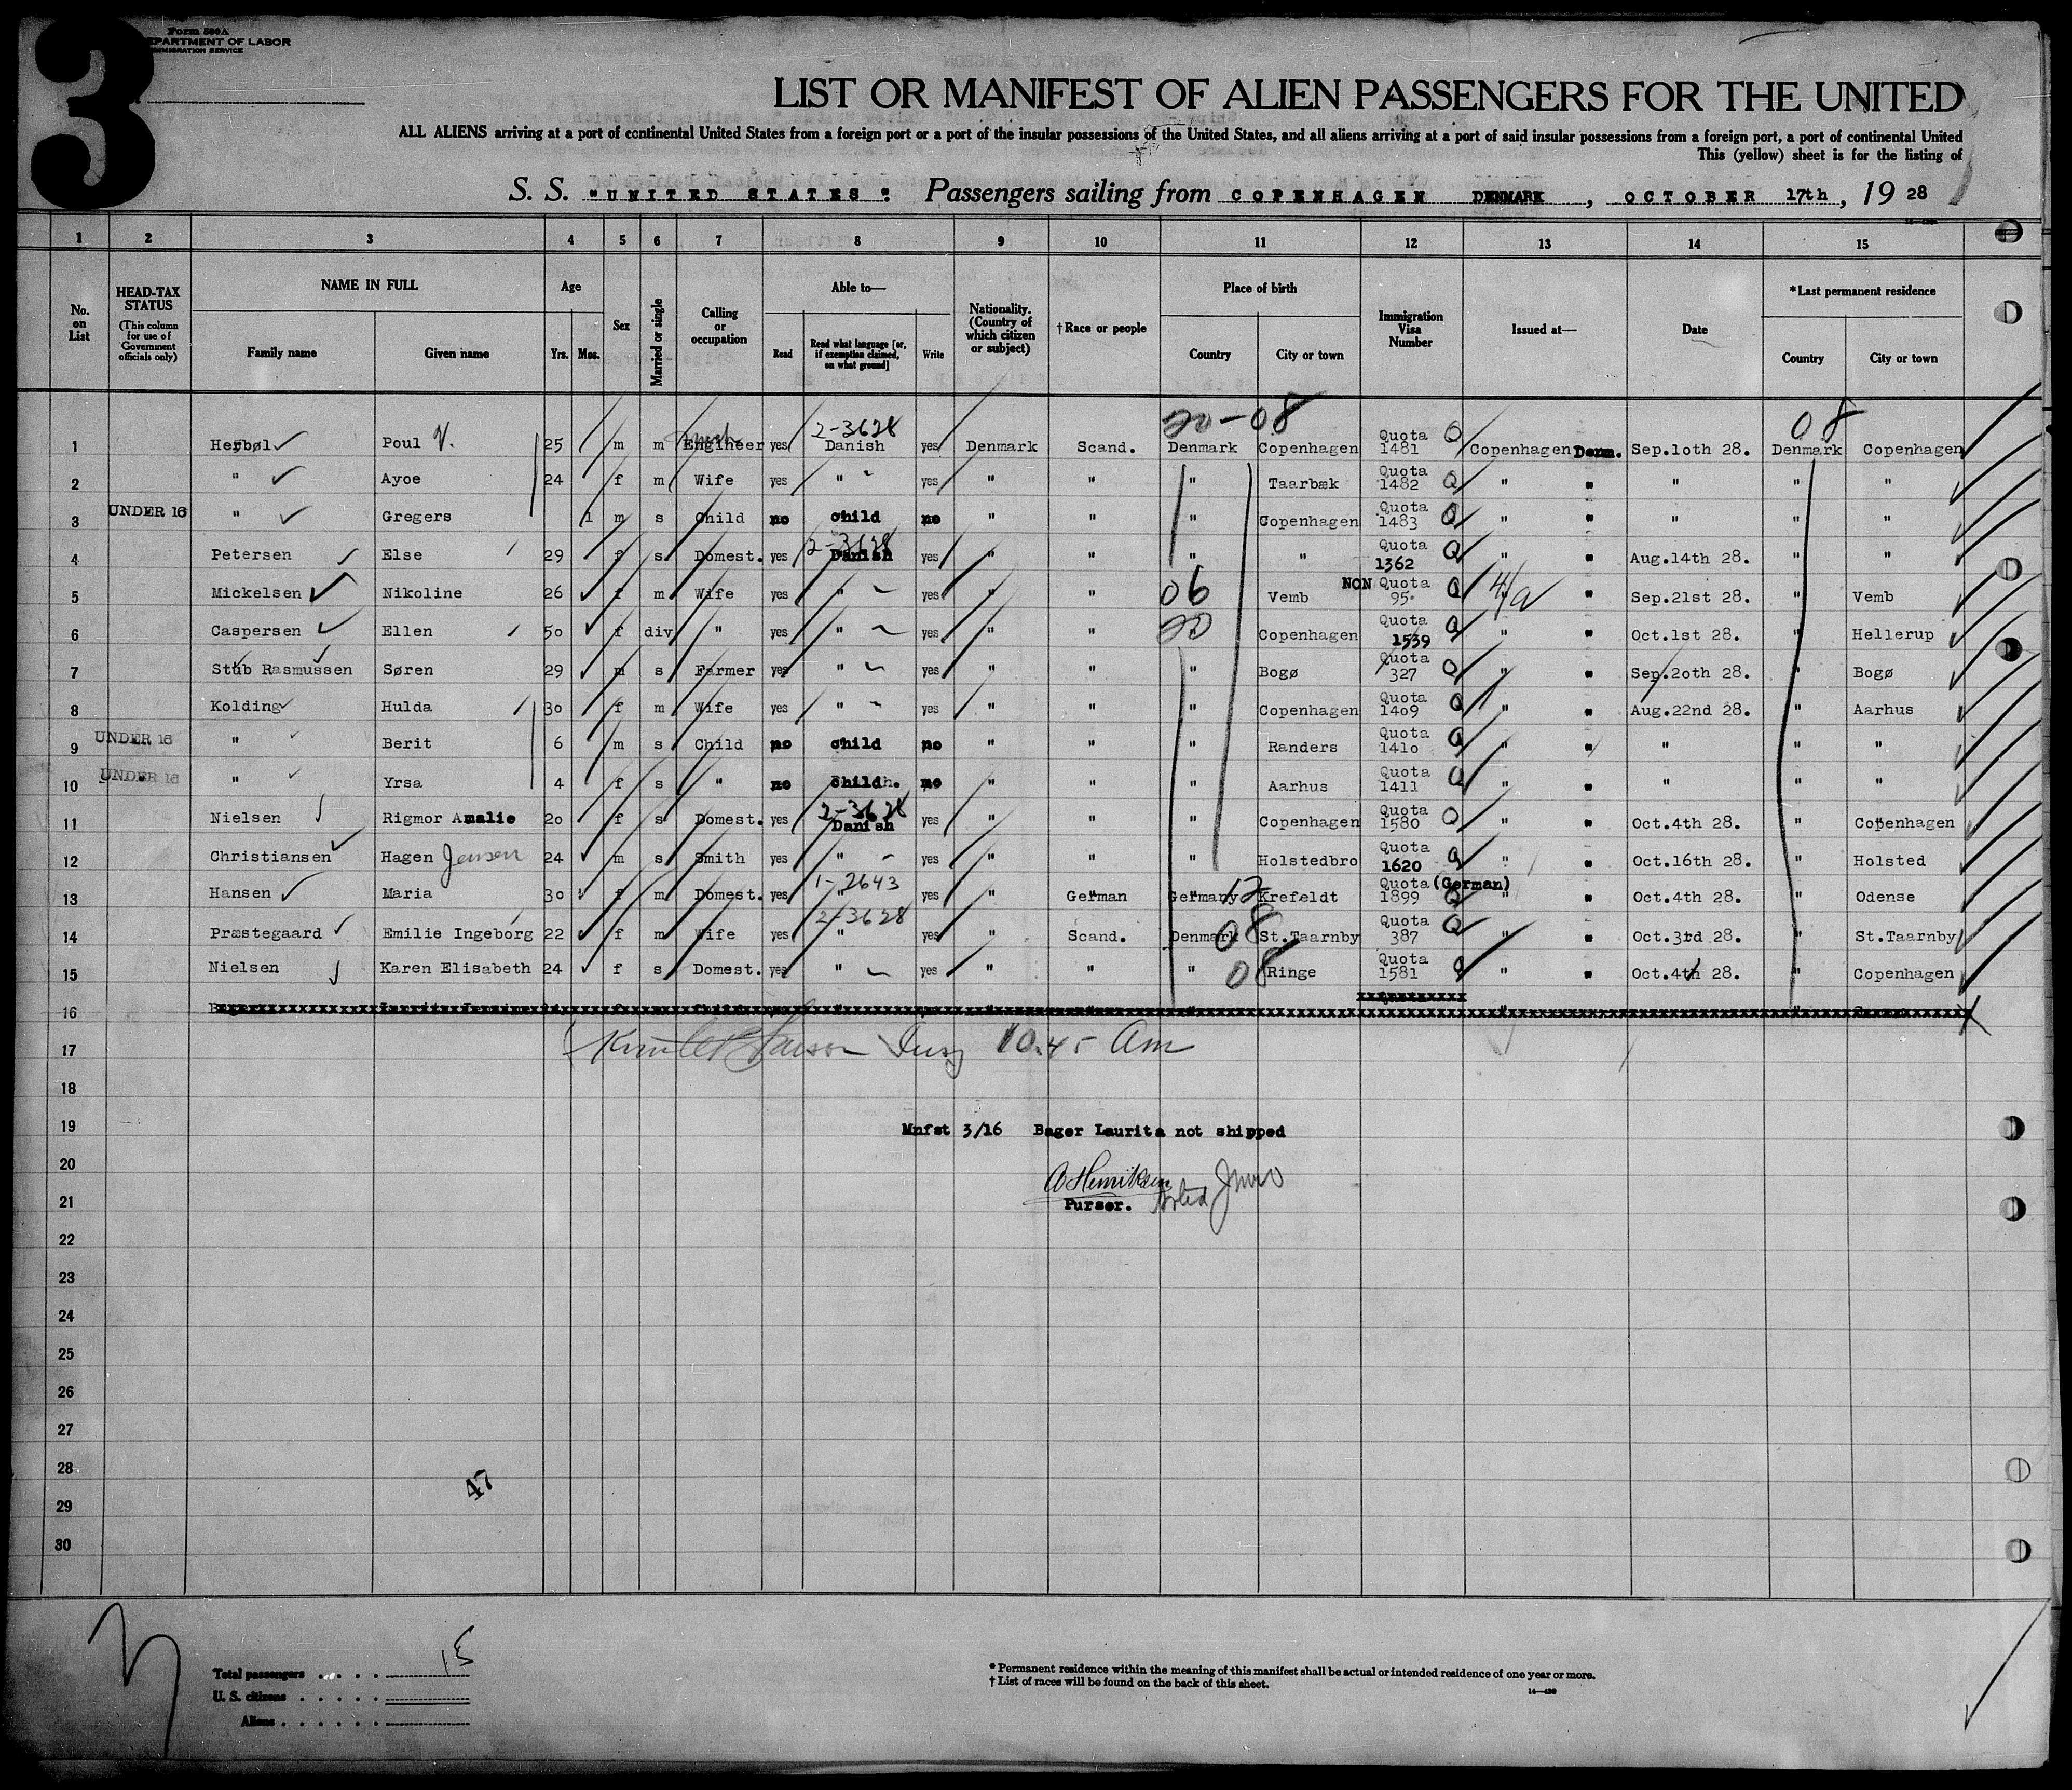 3
Form 500A
DEPARTMENT OF LABOR
IMMIGRATION SERVICE
LIST OR MANIFEST OF ALIEN PASSENGERS FOR THE UNITED
ALL ALIENS arriving at a port of continental United States from a foreign port or a port of the insular possessions of the United States, and all aliens arriving at a port of said insular possessions from a foreign port, a port of continental United
This (yellow) sheet is for the listing of
S. S. "UNITED STATES" Passengers sailing from COPENHAGEN DENMARK, OCTOBER 17th, 1928
1 2 3 4 5 6 7 8 9 10 11 12 13 14 15
No. on List
HEAD-TAX STATUS (This column for use of Government officials only)
NAME IN FULL
Family name Given name
Age
Yrs. Mos.
Sex
Married or single
Calling or occupation
Able to—
Read Read what language [or, if exemption claimed, on what ground] Write
Nationality. (Country of which citizen or subject)
†Race or people
Place of birth
Country City or town
Immigration Visa Number
Issued at—
Date
*Last permanent residence
Country City or town
20-08 08
2-3628
1 Herbøl Poul V. 25 m m Engineer yes Danish yes Denmark Scand. Denmark Copenhagen Quota 1481 Q Copenhagen Denm. Sep.10th 28. Denmark Copenhagen
2 " Ayoe 24 f m Wife yes " yes " " " Taarbæk Quota 1482 Q " " " " "
3 UNDER 16 " Gregers 1 m s Child no child no " " " Copenhagen Quota 1483 Q " " " " "
2-3628
4 Petersen Else 29 f s Domest. yes Danish yes " " " " Quota 1362 Q " " Aug.14th 28. " "
5 Mickelsen Nikoline 26 f m Wife yes " yes " " 06 Vemb NON Quota 95 Q 4/a " Sep.21st 28. " Vemb
6 Caspersen Ellen 50 f div " yes " yes " " 20 Copenhagen Quota 1539 Q " " Oct.1st 28. " Hellerup
7 Stub Rasmussen Søren 29 m s Farmer yes " yes " " " Bogø Quota 327 Q " " Sep.20th 28. " Bogø
8 Kolding Hulda 30 f m Wife yes " yes " " " Copenhagen Quota 1409 Q " " Aug.22nd 28. " Aarhus
9 UNDER 16 " Berit 6 m s Child no child no " " " Randers Quota 1410 Q " " " " "
10 UNDER 16 " Yrsa 4 f s " no child no " " " Aarhus Quota 1411 Q " " " " "
2-3628
11 Nielsen Rigmor Amalie 20 f s Domest. yes Danish yes " " " Copenhagen Quota 1580 Q " " Oct.4th 28. " Copenhagen
12 Christiansen Hagen Jensen 24 m s Smith yes " yes " " " Holstedbro Quota 1620 Q " " Oct.16th 28. " Holsted
1-2643
13 Hansen Maria 30 f m Domest. yes " yes " German Germany 12 Krefeldt Quota (German) 1899 Q " " Oct.4th 28. " Odense
2-3628
14 Præstegaard Emilie Ingeborg 22 f m Wife yes " yes " Scand. Denmark 08 St.Taarnby Quota 387 Q " " Oct.3rd 28. " St.Taarnby
15 Nielsen Karen Elisabeth 24 f s Domest. yes " yes " " " 08 Ringe Quota 1581 Q " " Oct.4th 28. " Copenhagen
16
17 10.45 Am
18
19 Mnfst 3/16 Bager Laurita not shipped
20 A Henriksen
21 Purser.
22
23
24
25
26
27
28
47
29
30
Total passengers 15
U. S. citizens
Aliens
* Permanent residence within the meaning of this manifest shall be actual or intended residence of one year or more.
† List of races will be found on the back of this sheet.